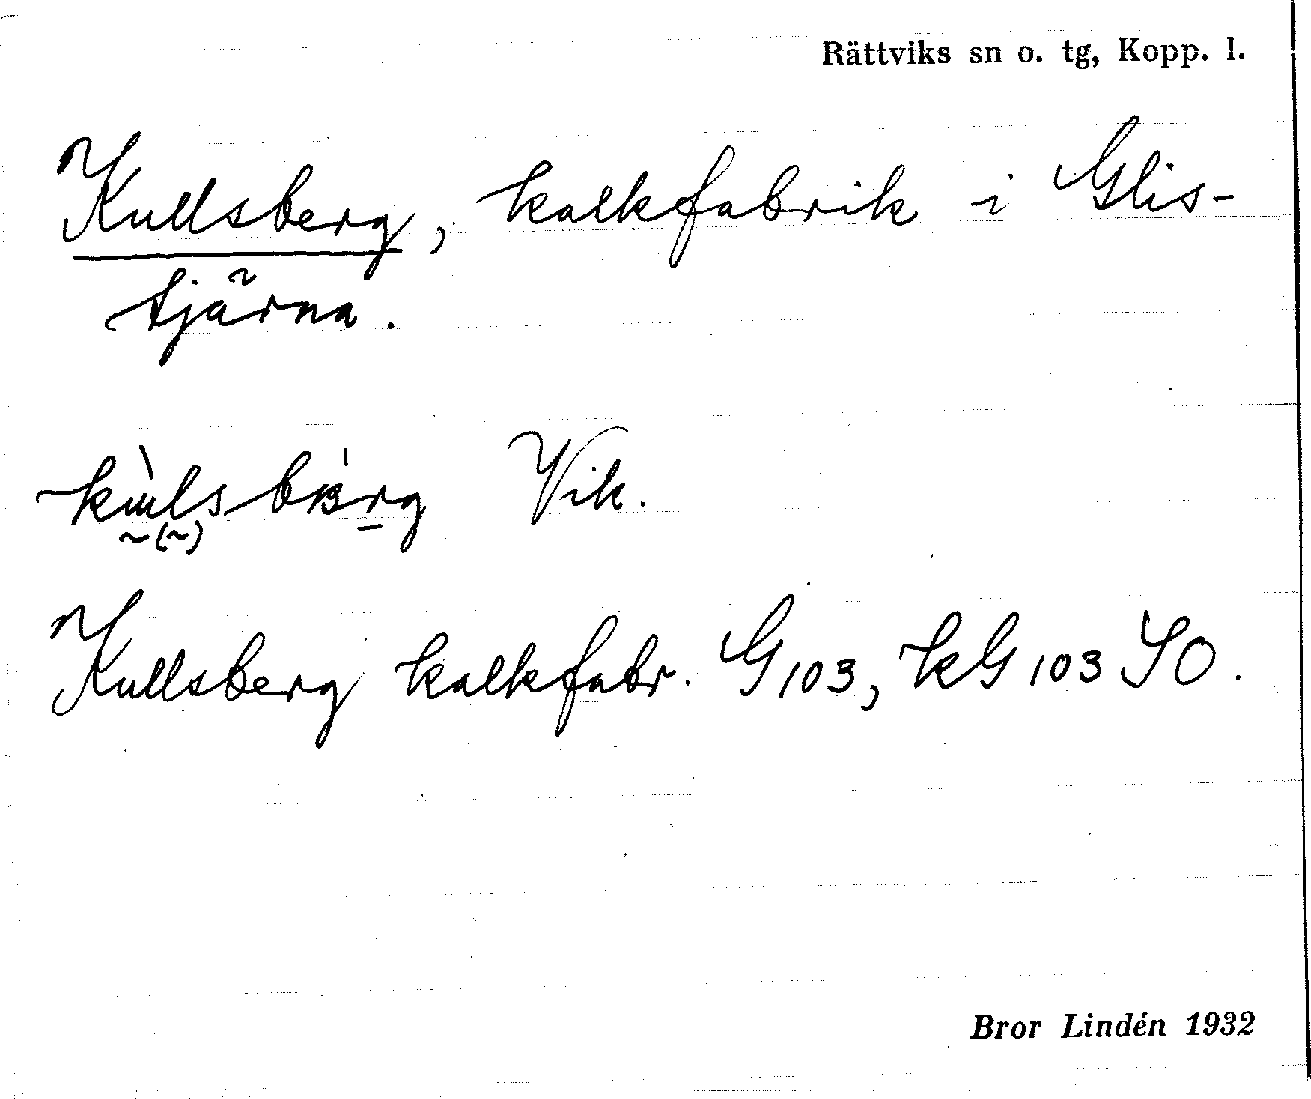 Rättviks sn o. tg, Kopp. l.
Kullsberg, kalkfabrik i Glis-
tjärna.
Vik.
Kullsberg kalkfabr. G103, kG103 SO.
Bror Lindén 1932